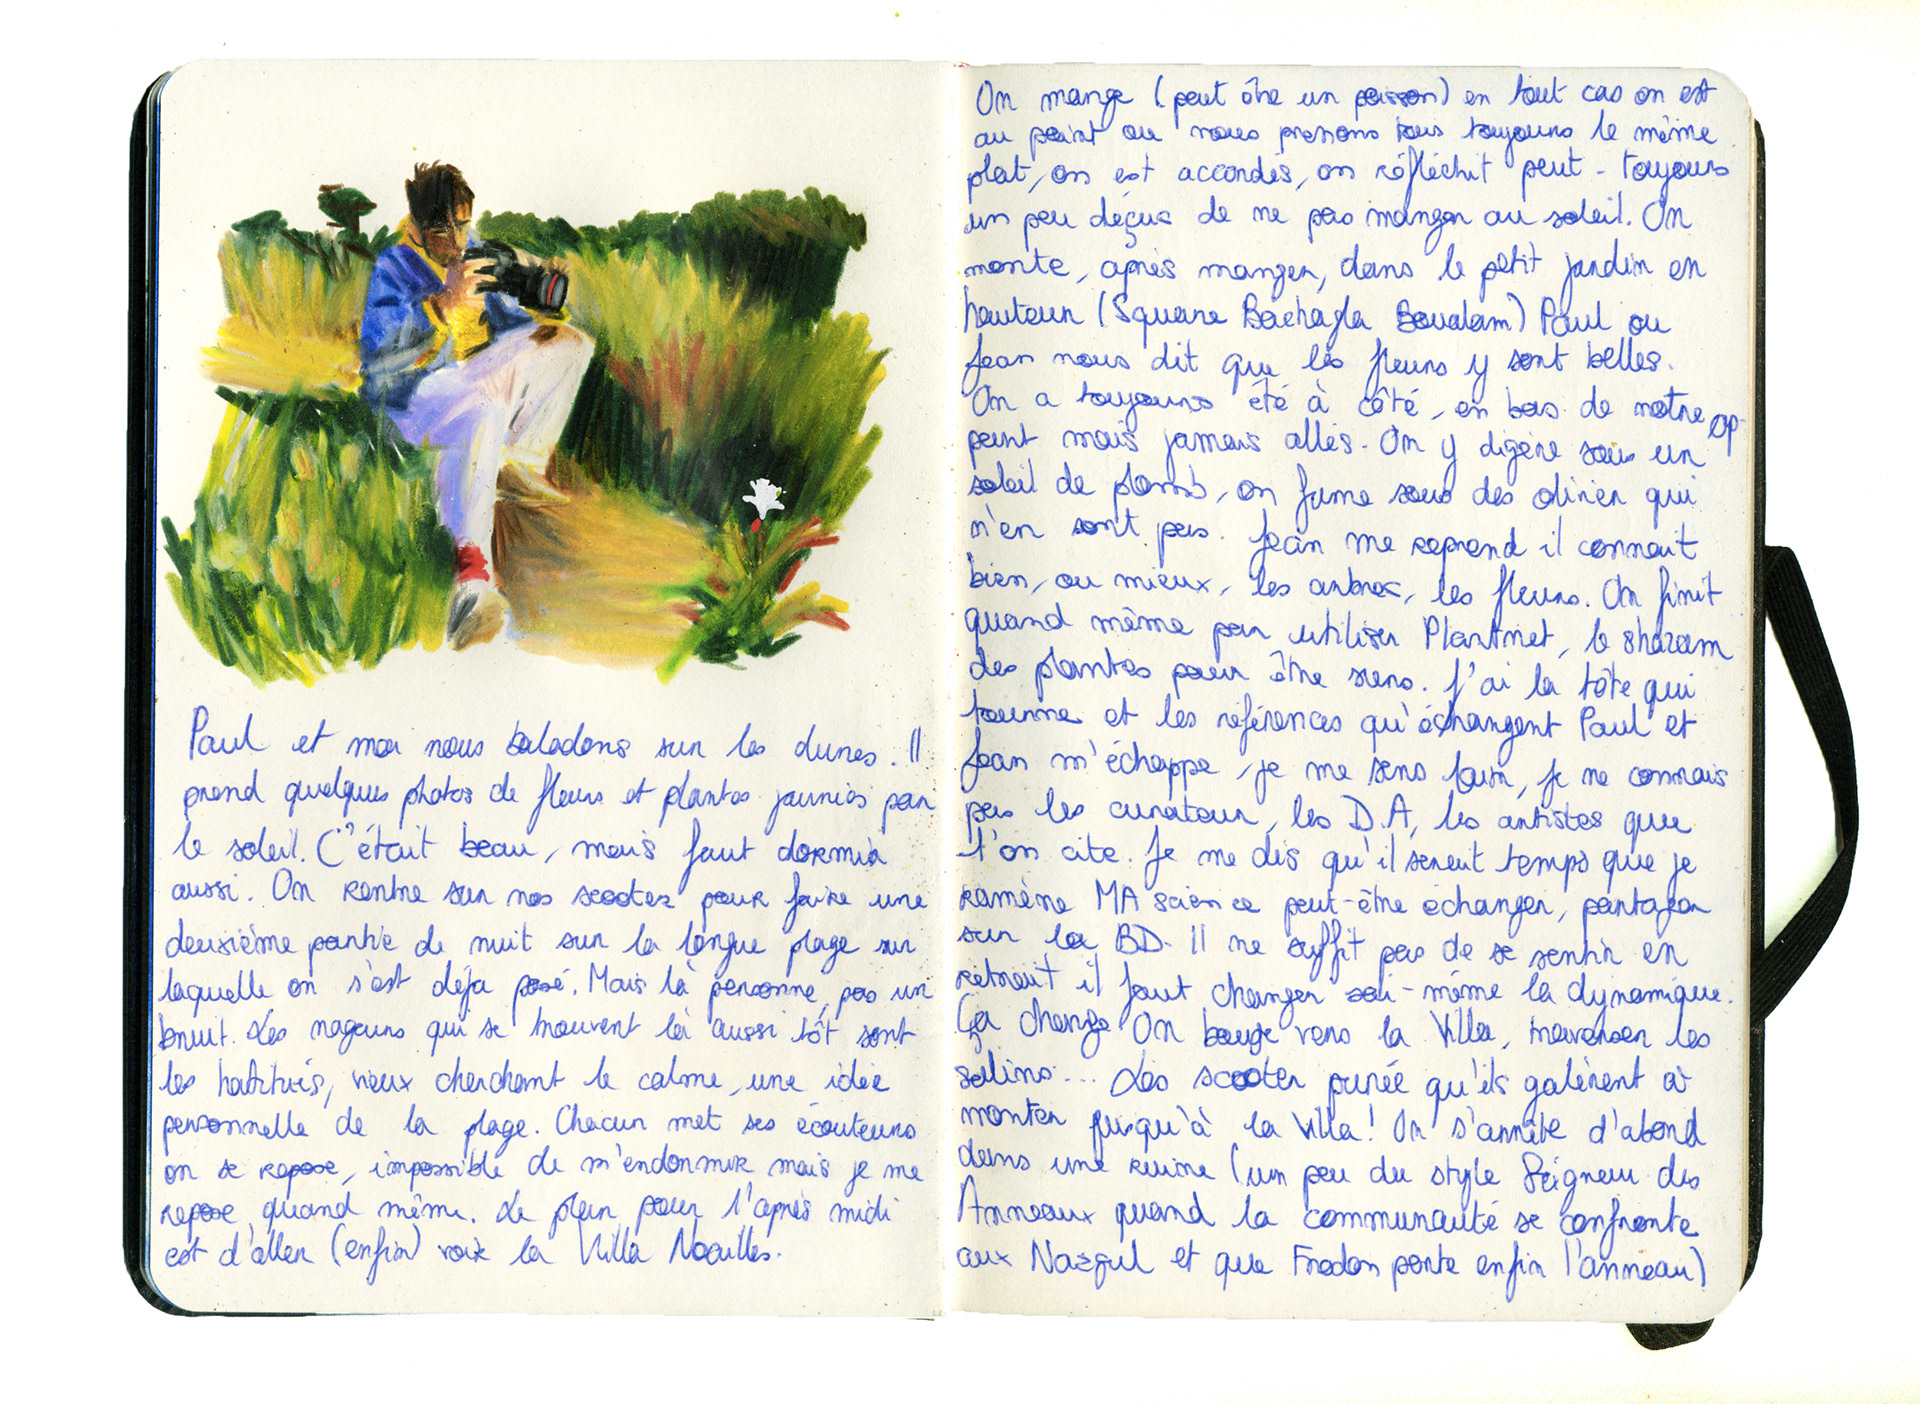 Paul et moi nous baladons sur les dunes. Il
prend quelques photos de fleurs et plantes jaunies par
le soleil. C'était beau, mais faut dormir
aussi. On rentre sur nos scooter pour faire une
deuxième partie de nuit sur la longue plage sur
laquelle on s'est déja posé. Mais là personne, pas un
bruit. Les nageurs qui se trouvent là aussi tôt sont
les habitués, vieux cherchant le calme, une idée
personnelle de la plage. Chacun met ses écouteurs
on se repose, impossible de m'endormir mais je me
repose quand même. Le plan pour l'après midi
est d'aller (enfin) voir la Villa Noailles.
On mange (peut être un poisson) en tout cas on est
au point ou nous prenons tous toujours le même
plat, on est accordés, on réfléchit peut - toujours
un peu déçus de ne pas manger au soleil. On
monte, après manger, dans le petit jardin en
hauteur (Square Bachagla Boualam) Paul ou
Jean nous dit que les fleurs y sont belles.
On a toujours été à côté, en bas de notre ap-
part mais jamais allés. On y digère sous un
soleil de plomb, on fume sous des olivier qui
n'en sont pas. Jean me reprend il connait
bien, ou mieux, les arbres, les fleurs. On finit
quand même par utiliser Plantnet, le shazam
des plantes pour être surs. J'ai la tête qui
tourne et les références qu'échangent Paul et
Jean m'échappe, je me sens loin, je ne connais
pas les curateur, les D.A, les artistes que
l'on cite. Je me dis qu'il serait temps que je
ramène MA science peut-être échanger, partager
sur la BD. Il ne suffit pas de se sentir en
retrait il faut changer soi-même la dynamique.
Ça change On bouge vers la Villa, traverser les
salins... Les scooter purée qu'ils galèrent à
monter jusqu'à la Villa! On s'arrête d'abord
dans une ruine (un peu du style Seigneur des
Anneaux quand la communauté se confronte
aux Nazgul et que Frodon porte enfin l'anneau)